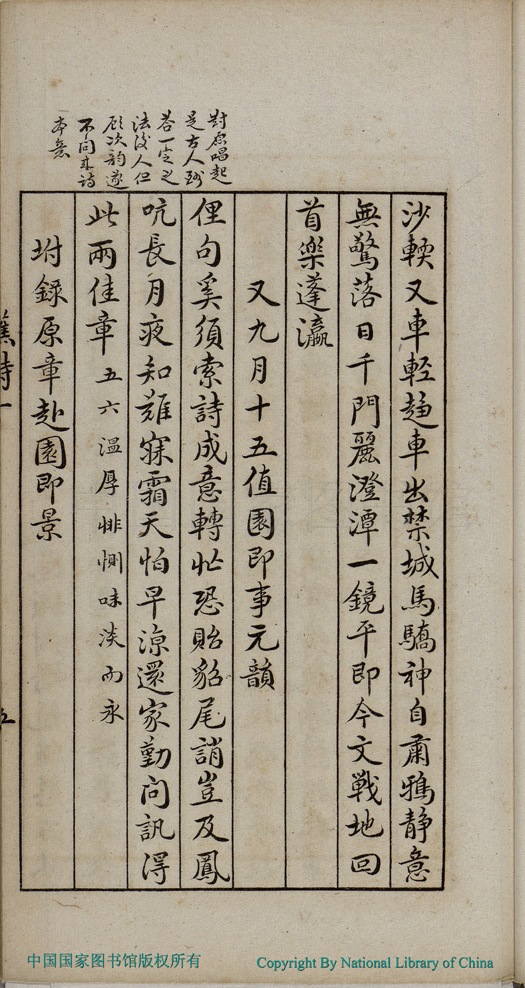 對原唱起
是古人酬
答一定之
法後人但
顧次韵遂
不問来詩
本意
沙輭又車輕趍車出禁城馬驕神自肅鴉静意
無驚落日千門麗澄潭一鏡平即今文戰地回
首樂蓬瀛
又九月十五值園即事元韻
俚句奚須索詩成意轉忙恐貽貂尾誚豈及鳳
吭長月夜知難寐霜天怕早涼還家勤問訊得
此兩佳章 五六溫厚悱惻味淡而永
坿錄原章赴園即景
中国国家图书馆版权所有
Copyright By National Library of China